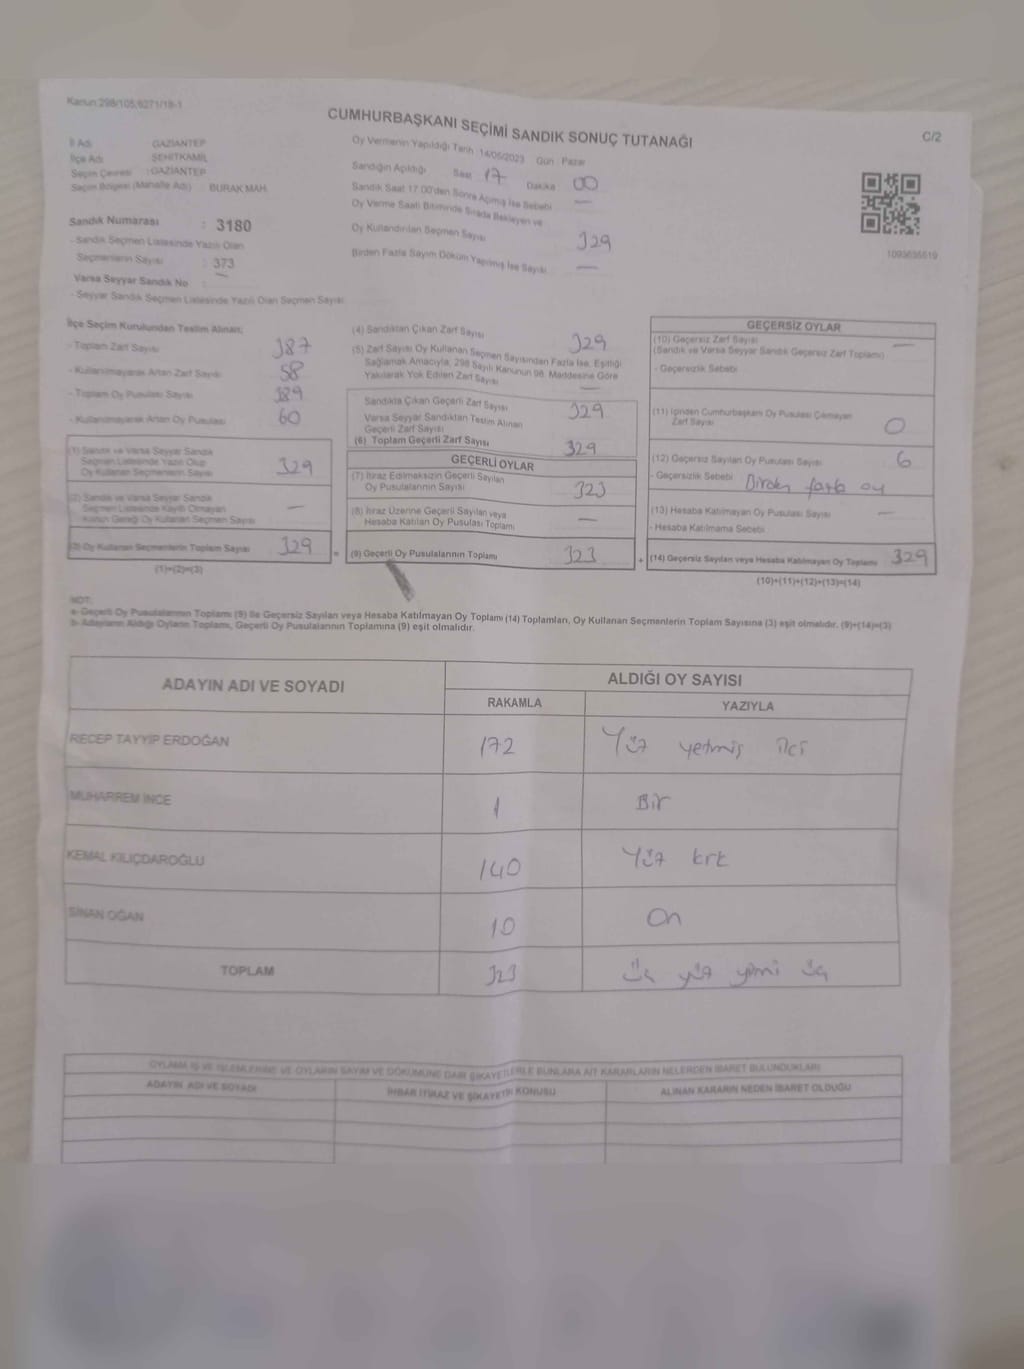 Kanun:298/105;6271/18-1
CUMHURBAŞKANI SEÇİMİ SANDIK SONUÇ TUTANAĞI
C/2
İl Adı GAZİANTEP
İlçe Adı ŞEHİTKAMİL
Seçim Çevresi : GAZİANTEP
Seçim Bölgesi (Mahalle Adı) BURAK MAH.
Oy Vermenin Yapıldığı Tarih :14/05/2023 Gün : Pazar
Sandığın Açıldığı Saat 17 Dakika 00
Sandık Saat 17:00'den Sonra Açılmış İse Sebebi —
Oy Verme Saati Bitiminde Sırada Bekleyen ve
Oy Kullandırılan Seçmen Sayısı 329
Birden Fazla Sayım Döküm Yapılmış İse Sayısı —
1093635519
Sandık Numarası : 3180
- Sandık Seçmen Listesinde Yazılı Olan
Seçmenlerin Sayısı : 373
Varsa Seyyar Sandık No : —
- Seyyar Sandık Seçmen Listesinde Yazılı Olan Seçmen Sayısı
İlçe Seçim Kurulundan Teslim Alınan;
- Toplam Zarf Sayısı 387
- Kullanılmayarak Artan Zarf Sayısı 58
- Toplam Oy Pusulası Sayısı 389
- Kullanılmayarak Artan Oy Pusulası 60
(1) Sandık ve Varsa Seyyar Sandık
Seçmen Listesinde Yazılı Olup
Oy Kullanan Seçmenlerin Sayısı 329
(2) Sandık ve Varsa Seyyar Sandık
Seçmen Listesinde Kayıtlı Olmayan
Kanun Gereği Oy Kullanan Seçmen Sayısı —
(3) Oy Kullanan Seçmenlerin Toplam Sayısı 329
(1)+(2)=(3)
(4) Sandıktan Çıkan Zarf Sayısı 329
(5) Zarf Sayısı Oy Kullanan Seçmen Sayısından Fazla İse, Eşitliği
Sağlamak Amacıyla, 298 Sayılı Kanunun 98. Maddesine Göre
Yakılarak Yok Edilen Zarf Sayısı —
Sandıkta Çıkan Geçerli Zarf Sayısı 329
Varsa Seyyar Sandıktan Teslim Alınan
Geçerli Zarf Sayısı
(6) Toplam Geçerli Zarf Sayısı 329
GEÇERLİ OYLAR
(7) İtiraz Edilmeksizin Geçerli Sayılan
Oy Pusulalarının Sayısı 323
(8) İtiraz Üzerine Geçerli Sayılan veya
Hesaba Katılan Oy Pusulası Toplamı —
= (9) Geçerli Oy Pusulalarının Toplamı 323
GEÇERSİZ OYLAR
(10) Geçersiz Zarf Sayısı —
(Sandık ve Varsa Seyyar Sandık Geçersiz Zarf Toplamı)
- Geçersizlik Sebebi
(11) İçinden Cumhurbaşkanı Oy Pusulası Çıkmayan
Zarf Sayısı 0
(12) Geçersiz Sayılan Oy Pusulası Sayısı 6
- Geçersizlik Sebebi Birden fazla oy
(13) Hesaba Katılmayan Oy Pusulası Sayısı —
- Hesaba Katılmama Sebebi
+ (14) Geçersiz Sayılan veya Hesaba Katılmayan Oy Toplamı 329
(10)+(11)+(12)+(13)=(14)
NOT:
a- Geçerli Oy Pusulalarının Toplamı (9) ile Geçersiz Sayılan veya Hesaba Katılmayan Oy Toplamı (14) Toplamları, Oy Kullanan Seçmenlerin Toplam Sayısına (3) eşit olmalıdır. (9)+(14)=(3)
b- Adayların Aldığı Oyların Toplamı, Geçerli Oy Pusulalarının Toplamına (9) eşit olmalıdır.
ADAYIN ADI VE SOYADI ALDIĞI OY SAYISI
RAKAMLA YAZIYLA
RECEP TAYYİP ERDOĞAN 172 Yüz yetmiş ikci
MUHARREM İNCE 1 Bir
KEMAL KILIÇDAROĞLU 140 Yüz kırk
SİNAN OĞAN 10 On
TOPLAM 323 üç yüz yirmi üç
OYLAMA İŞ VE İŞLEMLERİNE VE OYLARIN SAYIM VE DÖKÜMÜNE DAİR ŞİKAYETLERLE BUNLARA AİT KARARLARIN NELERDEN İBARET BULUNDUKLARI
ADAYIN ADI VE SOYADI İHBAR İTİRAZ VE ŞİKAYETİN KONUSU ALINAN KARARIN NEDEN İBARET OLDUĞU